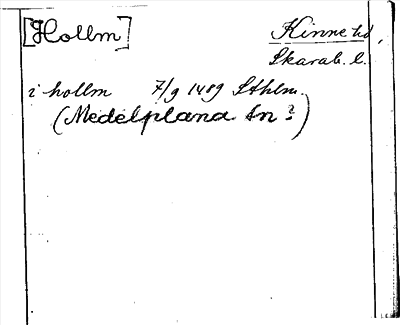 [Hollm]
Kinne hd,
Skarab. l.
i hollm 7/9 1489 Sthlm.
(Medelplana sn?)